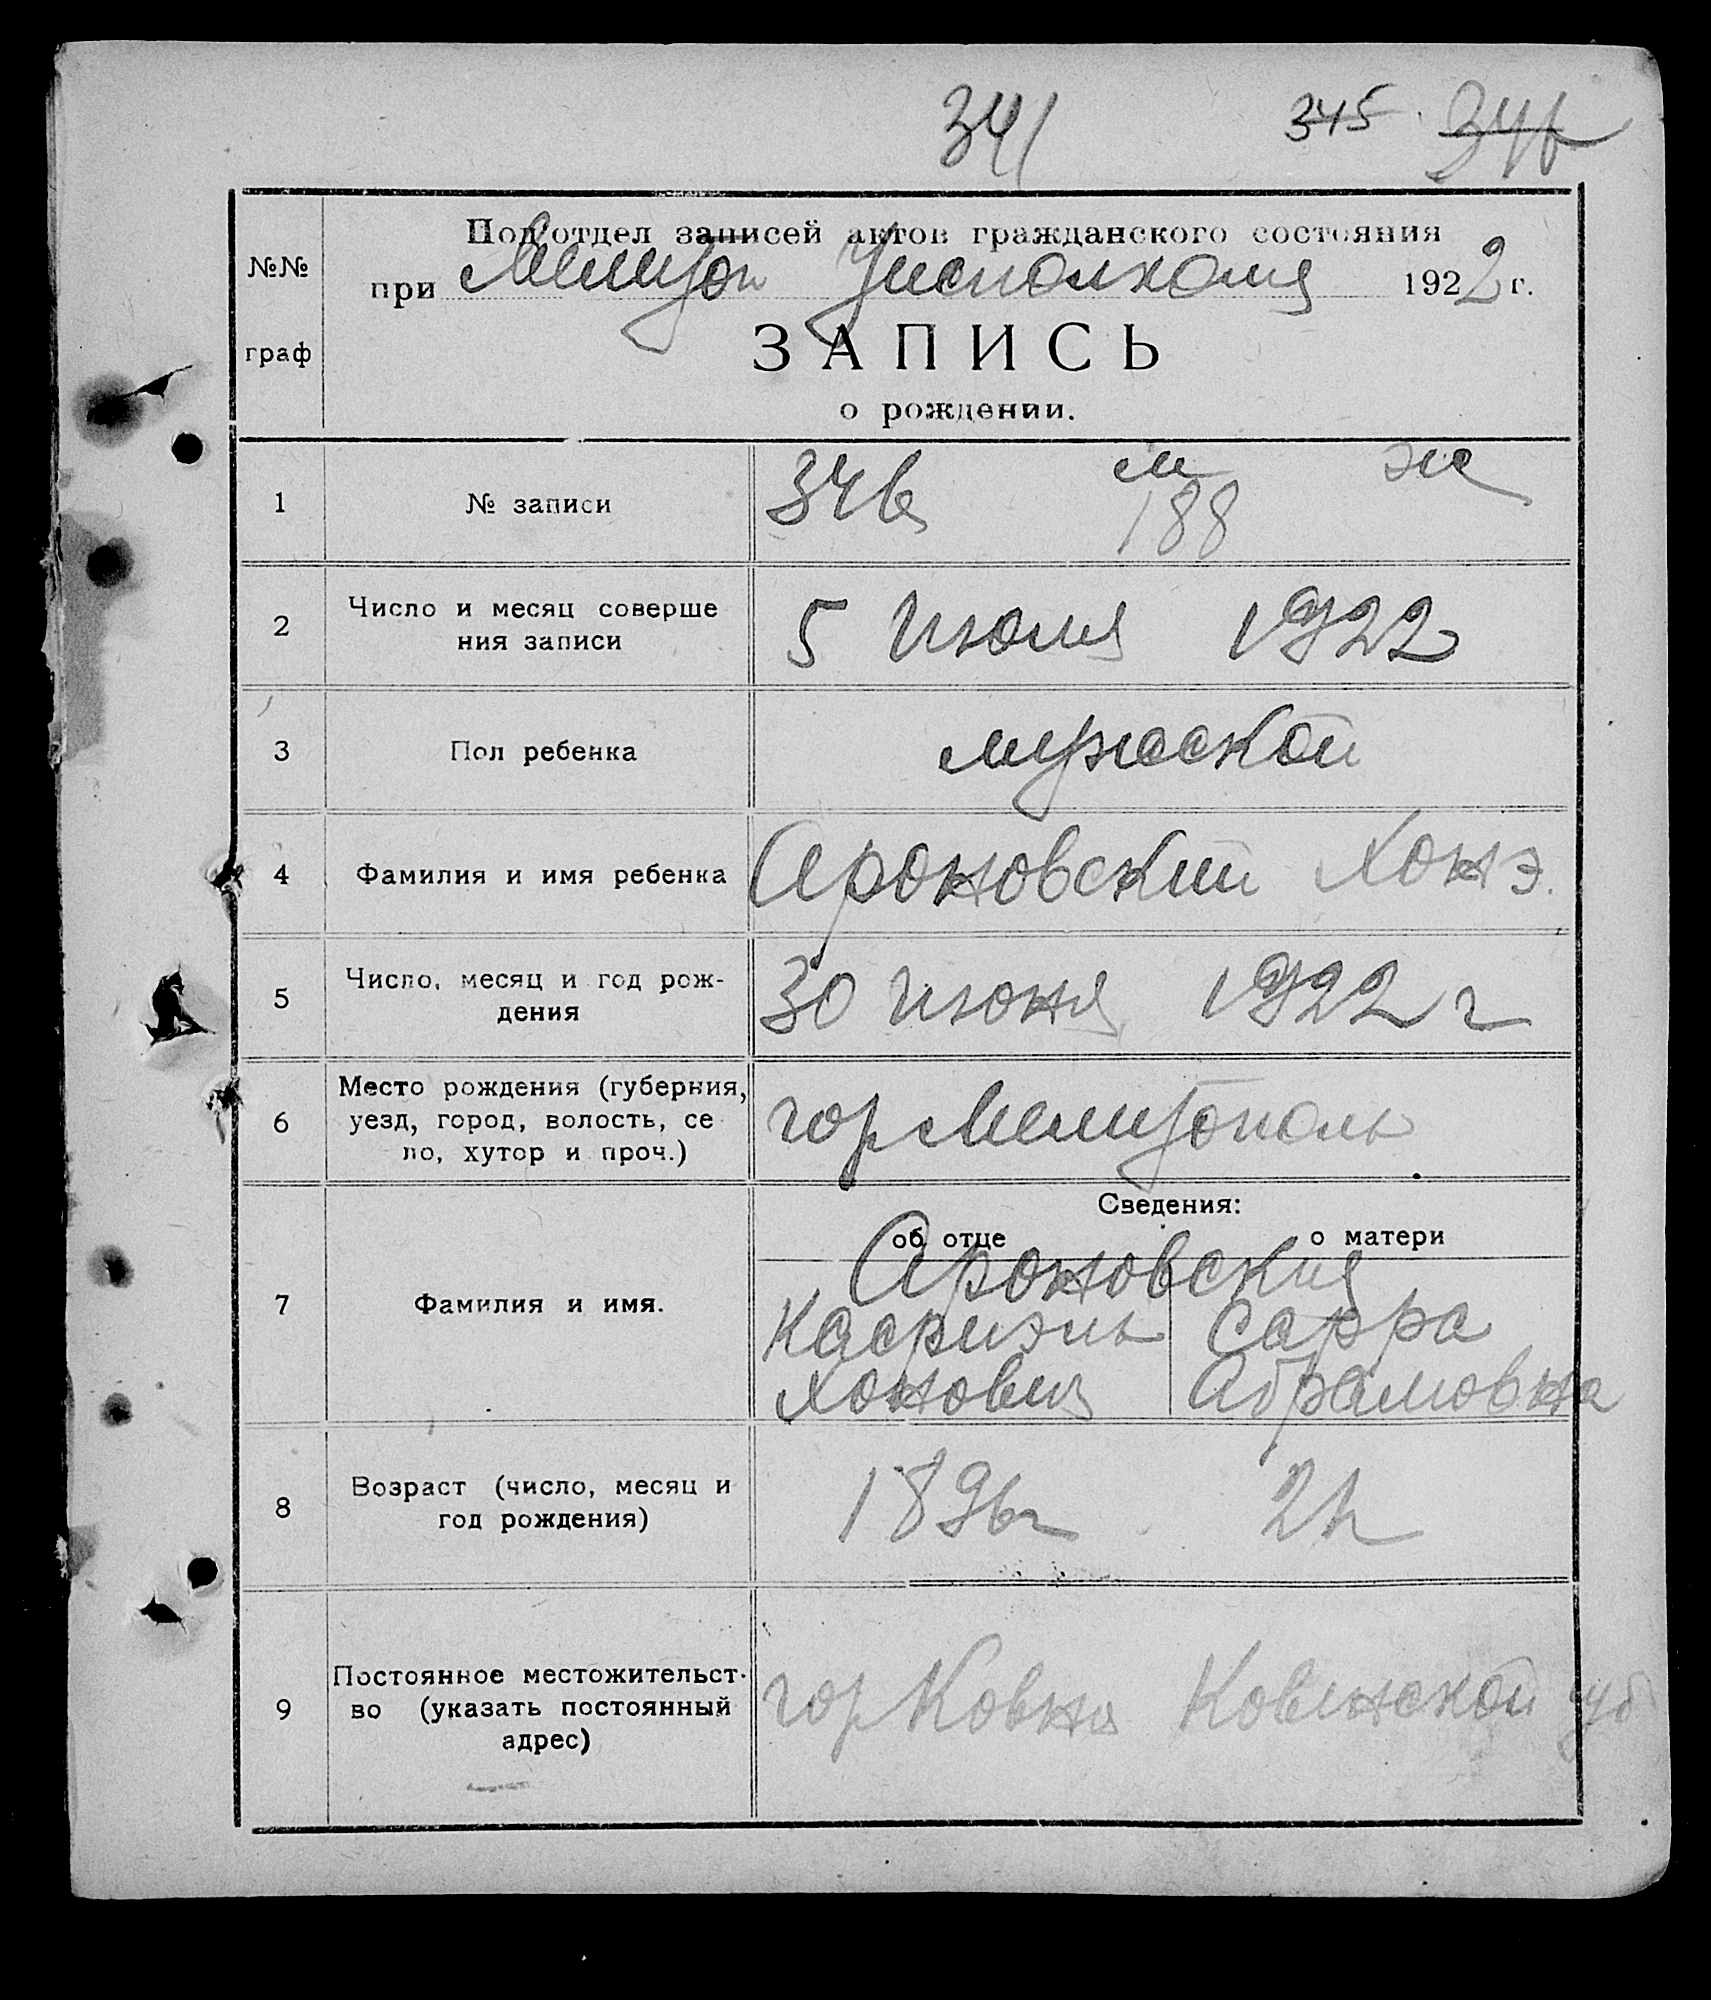 341 345 346
Подотдел записей актов гражданского состояния
№№
при Мелитоп Уисполкома 1922 г.
граф
ЗАПИСЬ
о рождении.
1 № записи 346 м ж
188
2 Число и месяц соверше
ния записи
5 июля 1922
3 Пол ребенка мужской
4 Фамилия и имя ребенка Ароновский Хонэ.
5 Число, месяц и год рож-
дения
30 июня 1922 г
6 Место рождения (губерния,
уезд, город, волость, се
ло, хутор и проч.)
гор Мелитополь
Сведения:
об отце о матери
7 Фамилия и имя.
Ароновския
Касриэль Сарра
Хонович Абрамовна
8 Возраст (число, месяц и
год рождения)
1896 г 21
9 Постоянное местожительст-
во (указать постоянный
адрес)
гор Ковна Ковенской губ